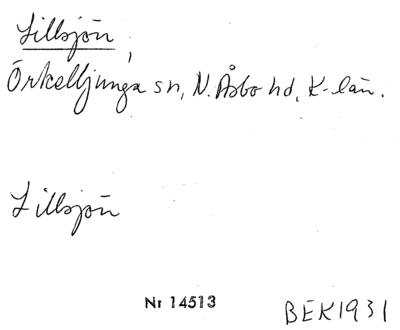 Lillsjön,
Örkelljunga sn, N. Åsbo hd, K-län.
Lillsjön
Nr 14513
BEK1931